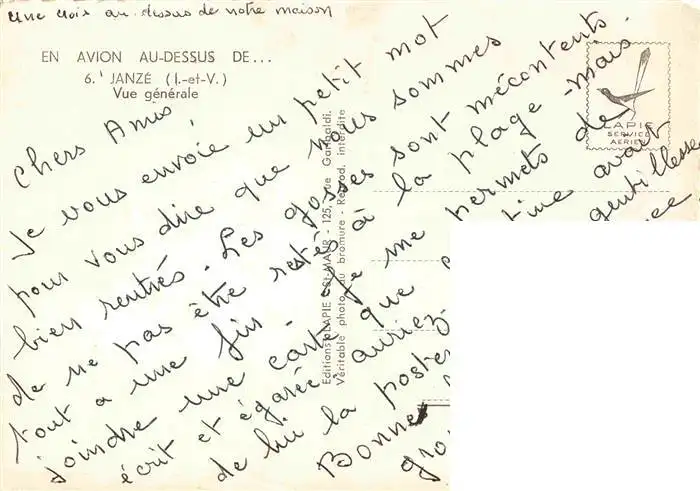 une croix au dessus de notre maison
EN AVION AU-DESSUS DE...
6. JANZÉ (I.-et-V.)
Vue générale
LAPIE
SERVICE
AERIEN
Editions LAPIE - St-MAUR - 125, rue Garibaldi.
Véritable photo au bromure - Reprod. interdite
Chers Amis
Je vous envoie un petit mot
pour vous dire que nous sommes
bien rentrés. Les gosses sont mécontents
de ne pas être restés à la plage - mais
tout a une fin. Je me permets de
joindre une carte que avait
écrit et égarée auriez gentillesse
de lui la poster
Bonne
gro